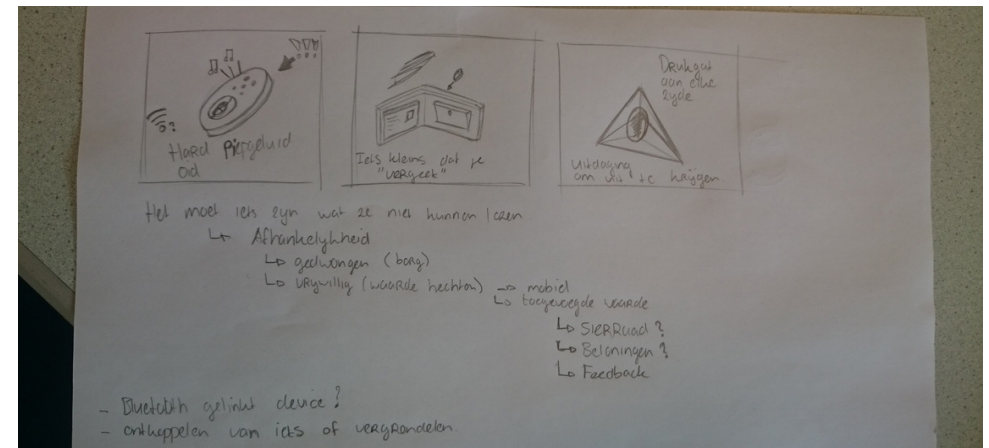 Hard Piepgeluid
oid
Iets kleins dat je
"vergeet"
Drukgat
aan elke
zyde
uitdaging
om uit te krijgen.
Het moet iets zyn wat ze niet kunnen lozen
↳ Afhankelykheid
↳ gedwongen (borg)
↳ vrywillig (waarde hechten) → mobiel
↳ toegevoegde waarde
↳ Sierraad?
↳ Beloningen?
↳ Feedback
- Bluetooth gelinkt device?
- ontkoppelen van iets of vergrendelen.